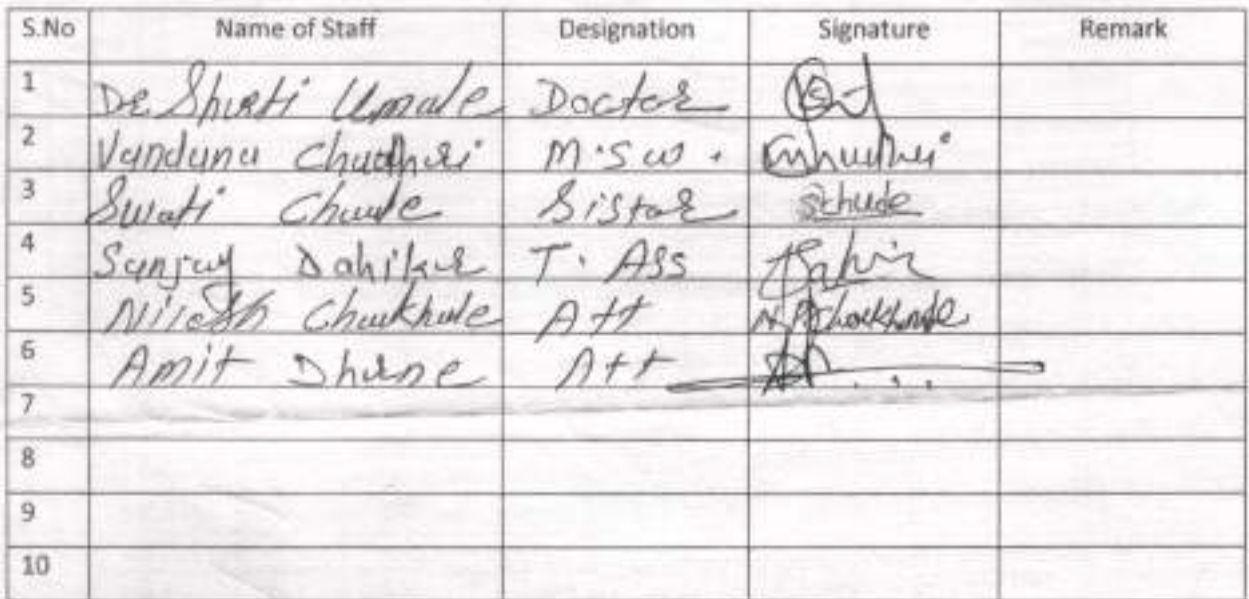 S.No Name of Staff Designation Signature Remark
1 Dr Shruti Umale Doctor
2 Vandana Chaudhari M.S.W.
3 Swati Chude Sistar SChude
4 Sanjay Dahikar T. Ass
5 Nilesh Att
6 Amit Dhane Att
7
8
9
10